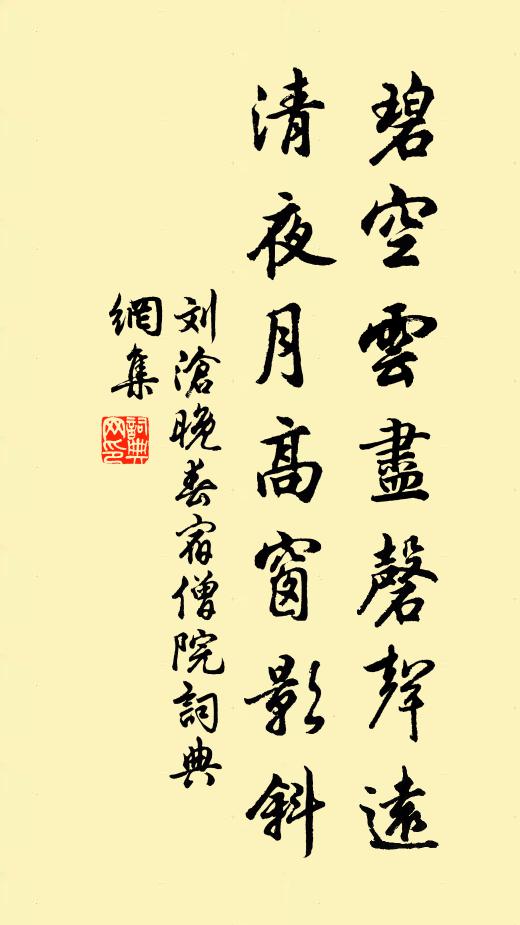 碧空雲盡磬聲遠
清夜月高窗影斜
刘滄晚春宿僧院詞典
網集
詞典網印